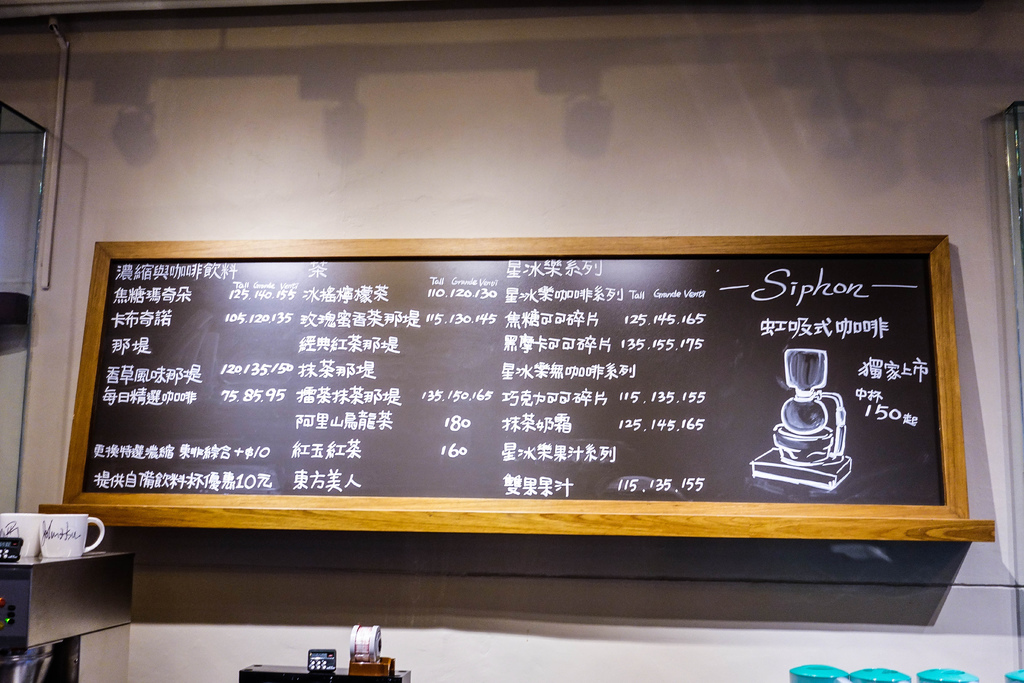 濃縮與咖啡飲料
Tall Grande Venti
焦糖瑪奇朵 125.140.155
卡布奇諾 105.120.135
那堤
香草風味那堤 120.135.150
每日精選咖啡 75.85.95
更換特選濃縮 東啡綜合+$10
提供自備飲料杯優惠10元
茶
Tall Grande Venti
冰搖檸檬茶 110.120.130
玫瑰蜜香茶那堤 115.130.145
經典紅茶那堤
抹茶那堤
擂茶抹茶那堤 135.150.165
阿里山烏龍茶 180
紅玉紅茶 160
東方美人
星冰樂系列
星冰樂咖啡系列 Tall Grande Venti
焦糖可可碎片 125.145.165
黑摩卡可可碎片 135.155.175
星冰樂無咖啡系列
巧克力可可碎片 115.135.155
抹茶奶霜 125.145.165
星冰樂果汁系列
雙果果汁 115.135.155
Siphon
虹吸式咖啡
獨家上市
中杯
150起